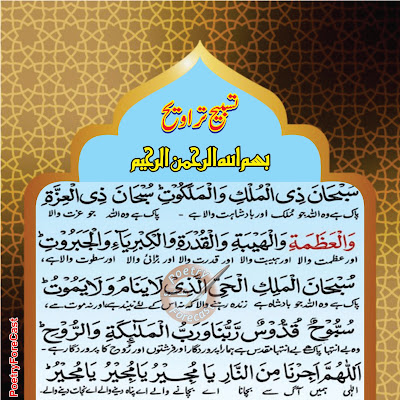 تسبیح تراویح
بسم اللہ الرحمن الرحیم
سُبْحَانَ ذِی الْمُلْکِ وَالْمَلَکُوْتِ سُبْحَانَ ذِی الْعِزَّۃِ
پاک ہے وہ اللہ جو ملک اور بادشاہت والا ہے - پاک ہے وہ اللہ جو عزت والا
وَالْعَظَمَةِ وَالْهَيْبَةِ وَالْقُدْرَةِ وَالْكِبْرِيَآءِ وَالْجَبَرُوْتِ
اور عظمت والا اور ہیبت والا اور قدرت والا اور بڑائی والا اور سطوت والا ہے،
سُبْحَانَ الْمَلِکِ الْحَیِّ الَّذِیْ لَایَنَامُ وَلَا یَمُوْتُ
پاک ہے وہ اللہ جو بادشاہ ہے زندہ رہنے والا کہ نہ اس کے لئے نیند ہے اور نہ موت ہے،
سُبُّوْحٌ قُدُّوْسٌ رَبُّنَا وَرَبُّ الْمَلٰٓئِکَةِ وَالرُّوْحِ
وہ بے انتہا پاک ہے بے انتہا مقدس ہے ہمارا پروردگار اور فرشتوں اور روح کا پروردگار ہے -
اَللّٰهُمَّ اَجِرْنَا مِنَ النَّارِ یَا مُجِیْرُ یَا مُجِیْرُ یَا مُجِیْرُ
الٰہی ہمیں آگ سے بچانا اے بچانے والے اے پناہ دینے والے اے نجات دینے والے
PoetryForeCast
Poetry
Forecast